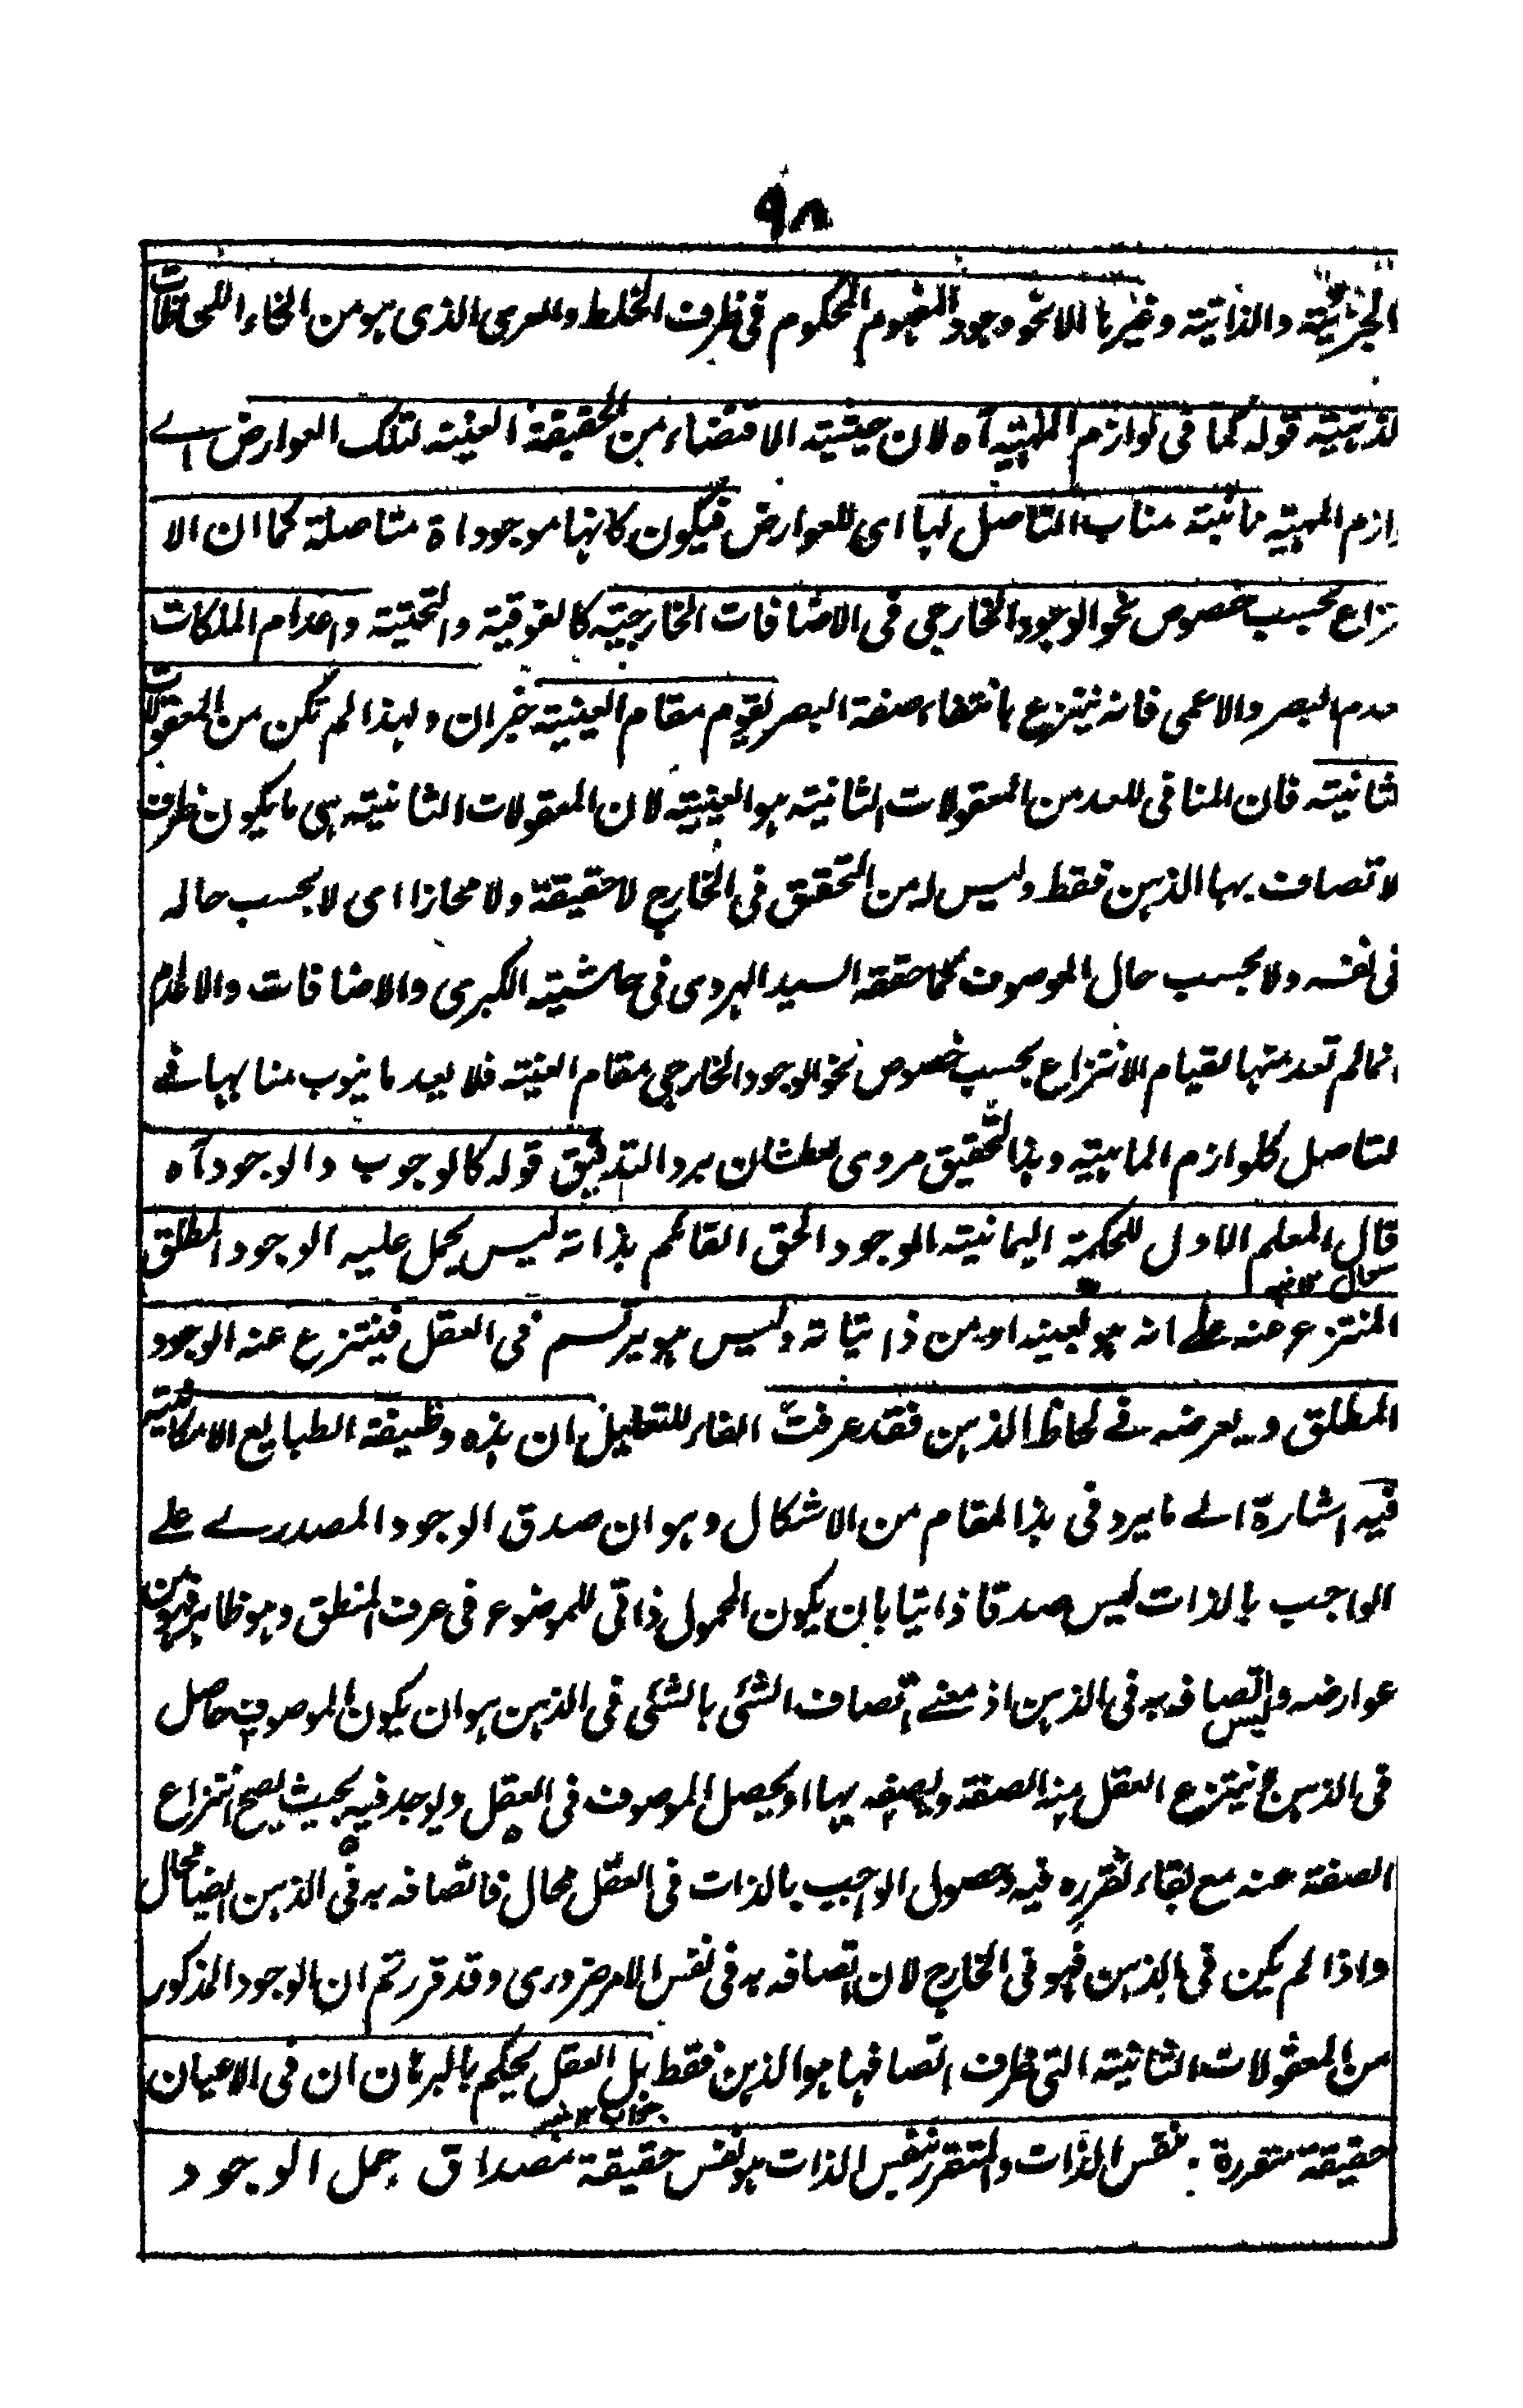 ٩٨
الجزئية والذاتية وغيرها الا نحو وجود المفهوم المحكوم فى ظرف الخلط والعرى الذى هو من انحاء اللحاظات
لذهنية قوله كما فى لوازم المهية آه لان حيثية الاقتضاء من الحقيقة العينية لتلك العوارض اے
وازم المهية نائبة مناب التاصل لها اى للعوارض فيكون كانها موجوداة متاصلة كما ان الا
نتزاع بحسب خصوص نحو الوجود الخارجى فى الاضافات الخارجية كالفوقية والتحتية واعدام الملكات
عدم البصر والاعمى فانه ينتزع بانتفاء صفة البصر يقوم مقام العينية خبر ان ولهذا لم تكن من المعقولات
لثانية فان المنافى للعد من المعقولات الثانية هو العينية لان المعقولات الثانية هى ما يكون ظرف
لاتصاف بها الذهن فقط وليس له من التحقق فى الخارج لا حقيقة ولا مجازا اى لا بحسب حاله
فى نفسه ولا بحسب حال الموصوف كما حققه السيد الهروى فى حاشيته الكبرى والاضافات والاعدام
انما لم تعد منها لقيام الانتزاع بحسب خصوص نحو الوجود الخارجى مقام العينية فلا يعد ما ينوب منابها فے
لتاصل كلوازم الماهية وهذا التحقيق مروى لعطشان برد التدقيق قوله كالوجوب والوجود آه
قال المعلم الاول للحكمة اليمانية الموجود الحق القائم بذاته ليس يحمل عليه الوجود المطلق
سوال ١٢ منه
المنتزع عنه علے انه هو بعينه او من ذاتياته وليس هو يرتسم فى العقل فينتزع عنه الوجود
المطلق ويعرضه فے لحاظ الذهن فقد عرفت الفاء للتعليل ان هذه وظيفة الطبايع الامكانية
فيه اشارة الے ما يرد فى هذا المقام من الاشكال وهو ان صدق الوجود المصدرے علے
الواجب بالذات ليس صدقا ذاتيا بان يكون المحمول ذاتى للموضوع فى عرف المنطق وهو ظاهر فهو من
عوارضه وليس اتصافه به فى الذهن اذ معنے اتصاف الشئ بالشئ فى الذهن هو ان يكون الموصوف حاصل
فى الذهن ح ينتزع العقل منه الصفة ويصفه بها او يحصل الموصوف فى العقل ويوجد فيه بحيث يصح انتزاع
الصفة عنه مع بقاء تقرره فيه وحصول الواجب بالذات فى العقل محال فاتصافه به فى الذهن ايضا محال
واذا لم يكن فى الذهن فهو فى الخارج لان اتصافه به فى نفس الامر ضرورى وقد قررتم ان الوجود المذكور
من المعقولات الثانية التى ظرف اتصافها هو الذهن فقط بل العقل يحكم بالبرهان ان فى الاعيان
جواب ١٢ منه
حقيقة متقررة بنفس الذات والمتقرر بنفس الذات هو نفس حقيقة مصداق حمل الوجود